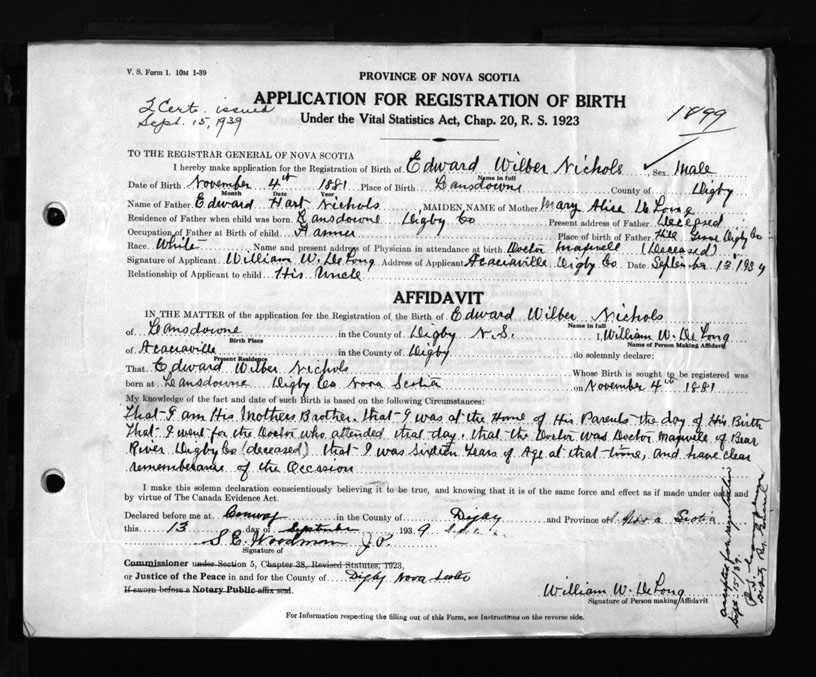 V. S. Form 1. 10M 1-39
PROVINCE OF NOVA SCOTIA
2 Certs. issued
Sept. 15, 1939
APPLICATION FOR REGISTRATION OF BIRTH
1899
Under the Vital Statistics Act, Chap. 20, R. S. 1923
TO THE REGISTRAR GENERAL OF NOVA SCOTIA
I hereby make application for the Registration of Birth of Edward Wilber Nichols ✓ Sex Male
Name in full
Date of Birth November 4th 1881 Place of Birth Lansdowne County of Digby
Month Date Year
Name of Father Edward Hart Nichols MAIDEN NAME of Mother Mary Alice De Long
Residence of Father when child was born. Lansdowne Digby Co Present address of Father Deceased
Occupation of Father at Birth of child Farmer Place of birth of Father Grove Digby Co
Race. White Name and present address of Physician in attendance at birth. Doctor (Deceased)
Signature of Applicant William W. DeLong Address of Applicant Acaciaville Digby Co. Date September 13th 1939
Relationship of Applicant to child His Uncle
AFFIDAVIT
IN THE MATTER of the application for the Registration of the Birth of Edward Wilber Nichols
Name in full
of Lansdowne in the County of Digby N.S. I, William W. DeLong
Birth Place Name of Person Making Affidavit
of Acaciaville in the County of Digby do solemnly declare:
Present Residence
That Edward Wilber Nichols Whose Birth is sought to be registered was
born at Lansdowne Digby Co Nova Scotia on November 4th 1881
My knowledge of the fact and date of such Birth is based on the following Circumstances:
That I am His Mothers Brother, that I was at the Home of His Parents the day of His Birth
That I went for the Doctor who attended that day, that the Doctor was Doctor of Bear
River Digby Co (deceased) that I was Sixteen Years of Age at that time, and have clear
rememberance of the Occasion
I make this solemn declaration conscientiously believing it to be true, and knowing that it is of the same force and effect as if made under oath and
by virtue of The Canada Evidence Act.
Declared before me at Conway in the County of Digby and Province of Nova Scotia
this 13 day of September 1939
S. E. Woodman J.P.
Signature of
Commissioner under Section 5, Chapter 38, Revised Statutes, 1923,
or Justice of the Peace in and for the County of Digby Nova Scotia
If sworn before a Notary Public affix seal.
William W. DeLong
Signature of Person making Affidavit
For Information respecting the filling out of this Form, see Instructions on the reverse side.
accepted for registration
Sept. 15/39.